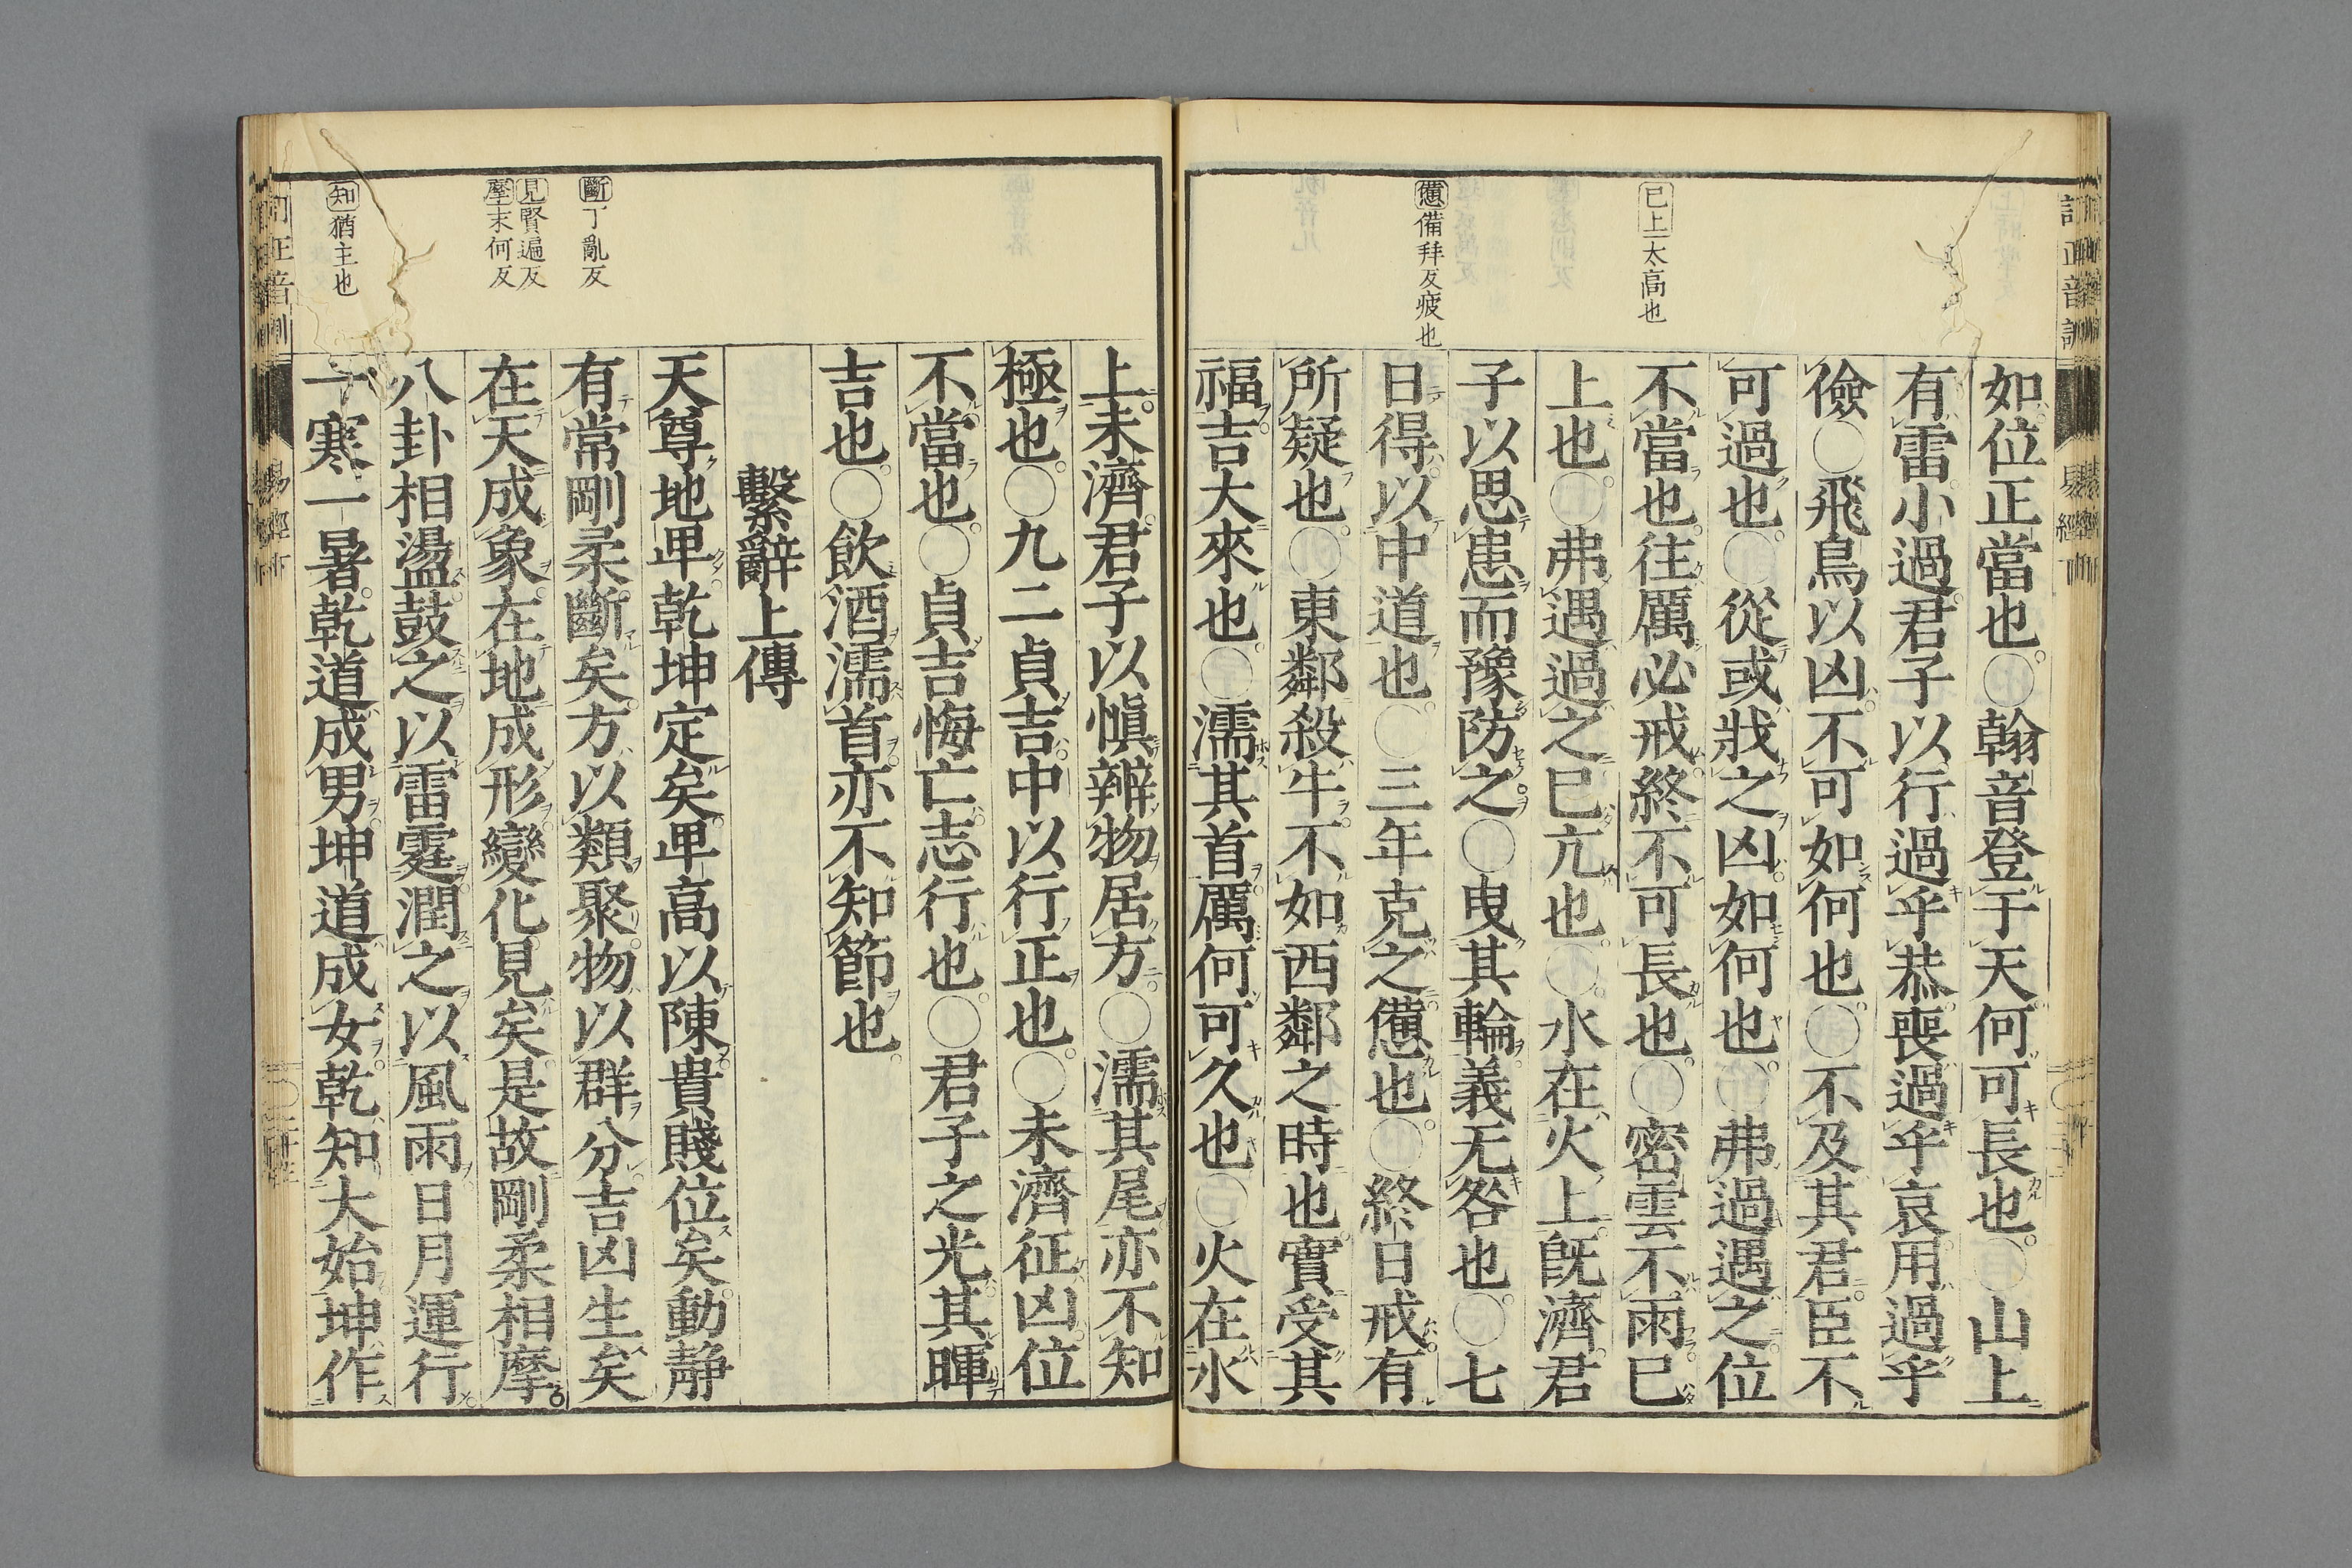 已上太高也
憊備拜反疲也
如位正當也○翰音登于天何可長也○山上
有雷小過君子以行過乎恭喪過乎哀用過乎
儉○飛鳥以凶不可如何也○不及其君臣不
可過也○從或戕之凶如何也○弗過遇之位
不當也往厲必戒終不可長也○密雲不雨已
上也○弗遇過之已亢也○水在火上既濟君
子以思患而豫防之○曳其輪義无咎也○七
日得以中道也○三年克之憊也○終日戒有
所疑也○東鄰殺牛不如西鄰之時也實受其
福吉大來也○濡其首厲何可久也○火在水
斷丁亂反
見賢遍反
摩末何反
知猶主也
上未濟君子以愼辨物居方○濡其尾亦不知
極也○九二貞吉中以行正也○未濟征凶位
不當也○貞吉悔亡志行也○君子之光其暉
吉也○飲酒濡首亦不知節也
繫辭上傳
天尊地卑乾坤定矣卑高以陳貴賤位矣動靜
有常剛柔斷矣方以類聚物以群分吉凶生矣
在天成象在地成形變化見矣是故剛柔相摩
八卦相盪鼓之以雷霆潤之以風雨日月運行
一寒一暑乾道成男坤道成女乾知大始坤作